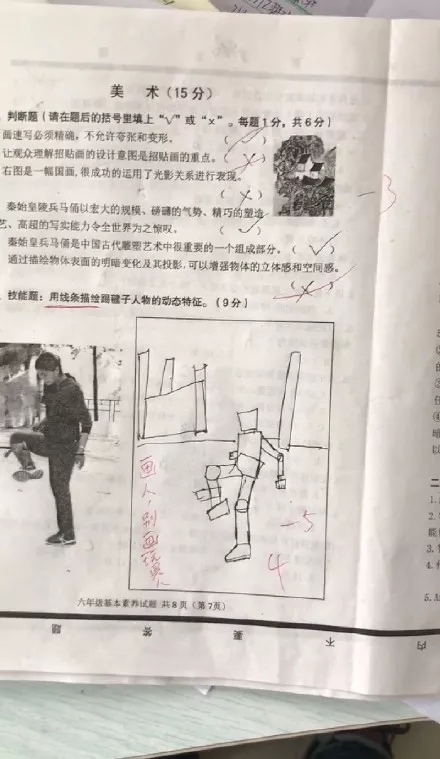 美 术（15分）
判断题（请在题后的括号里填上“√”或“×”。每题1分，共6分）
画速写必须精确，不允许夸张和变形。（ √ ）
让观众理解招贴画的设计意图是招贴画的重点。（ × ）
右图是一幅国画，很成功的运用了光影关系进行表现。
（ × ）
-3
秦始皇陵兵马俑以宏大的规模、磅礴的气势、精巧的塑造
艺、高超的写实能力令全世界为之惊叹。（ √ ）
秦始皇兵马俑是中国古代雕塑艺术中很重要的一个组成部分。（ √ ）
通过描绘物体表面的明暗变化及其投影，可以增强物体的立体感和空间感。
（ × ）
技能题：用线条描绘踢毽子人物的动态特征。（9分）
画人，别画
-5
4
六年级基本素养试题 共8页（第7页）
内 不 要 答 题
二
1.
2.
3.
4.
5.